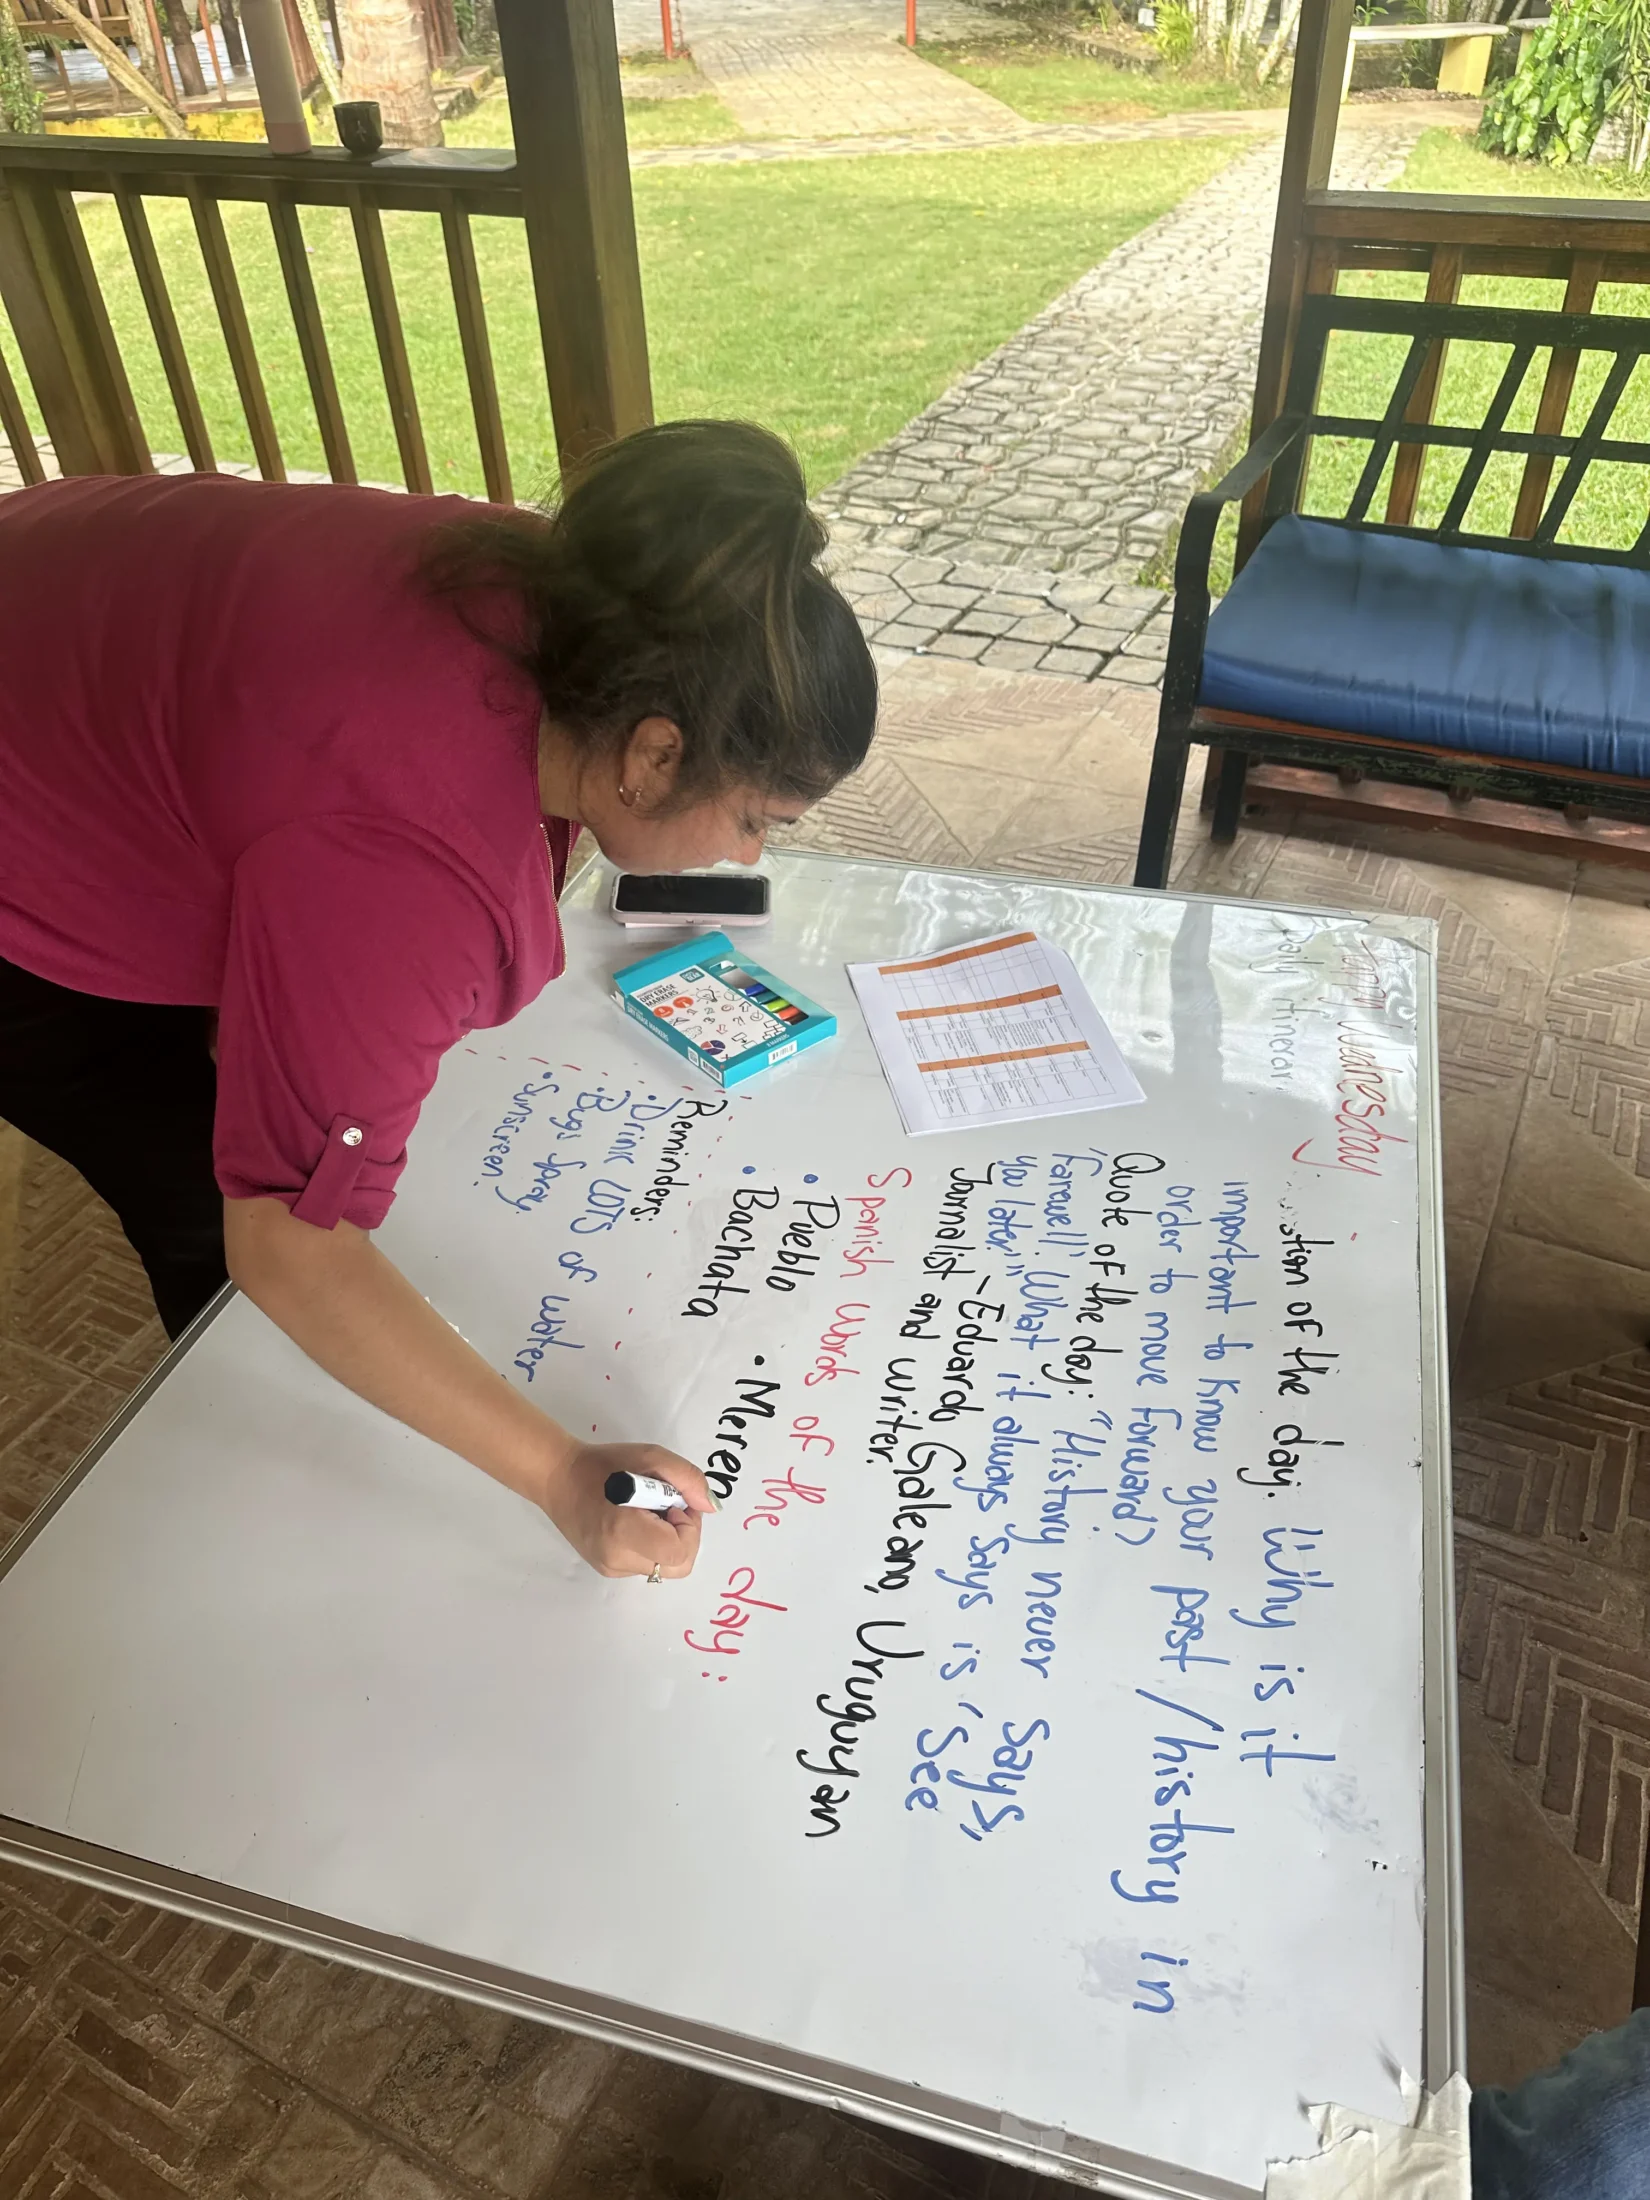 Happy Wednesday
Daily itinerar
stion of the day: Why is it
important to know your past / history in
order to move forward?
Quote of the day: "History never says,
'Farewell'. What it always says is, 'See
you later.'" - Eduardo Galeano, Uruguyan
Journalist and writer.
Spanish words of the day:
• Pueblo
• Bachata • Meren
Reminders:
• Drink LOTS of water
• Bugs spray.
• Sunscreen.
DRY ERASE
MARKERS